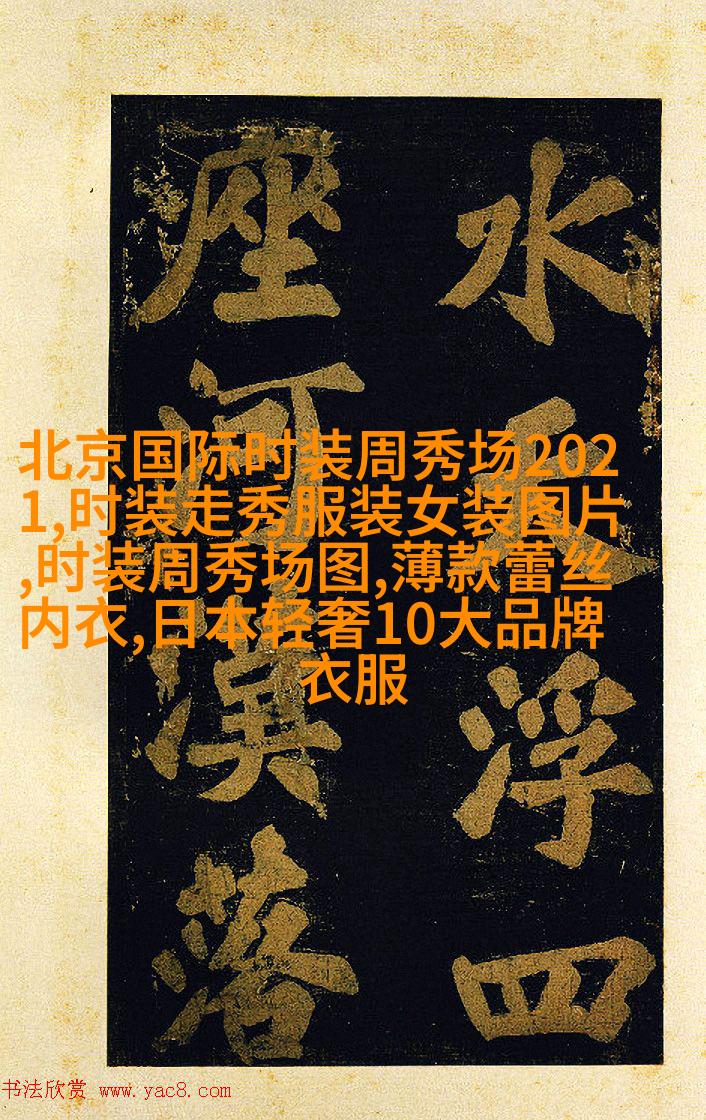 水天浮四
座河漢落
北京国际时装周秀场202
1,时装走秀服装女装图片
,时装周秀场图,薄款蕾丝
内衣,日本轻奢10大品牌
衣服
书法欣赏 www.yac8.com